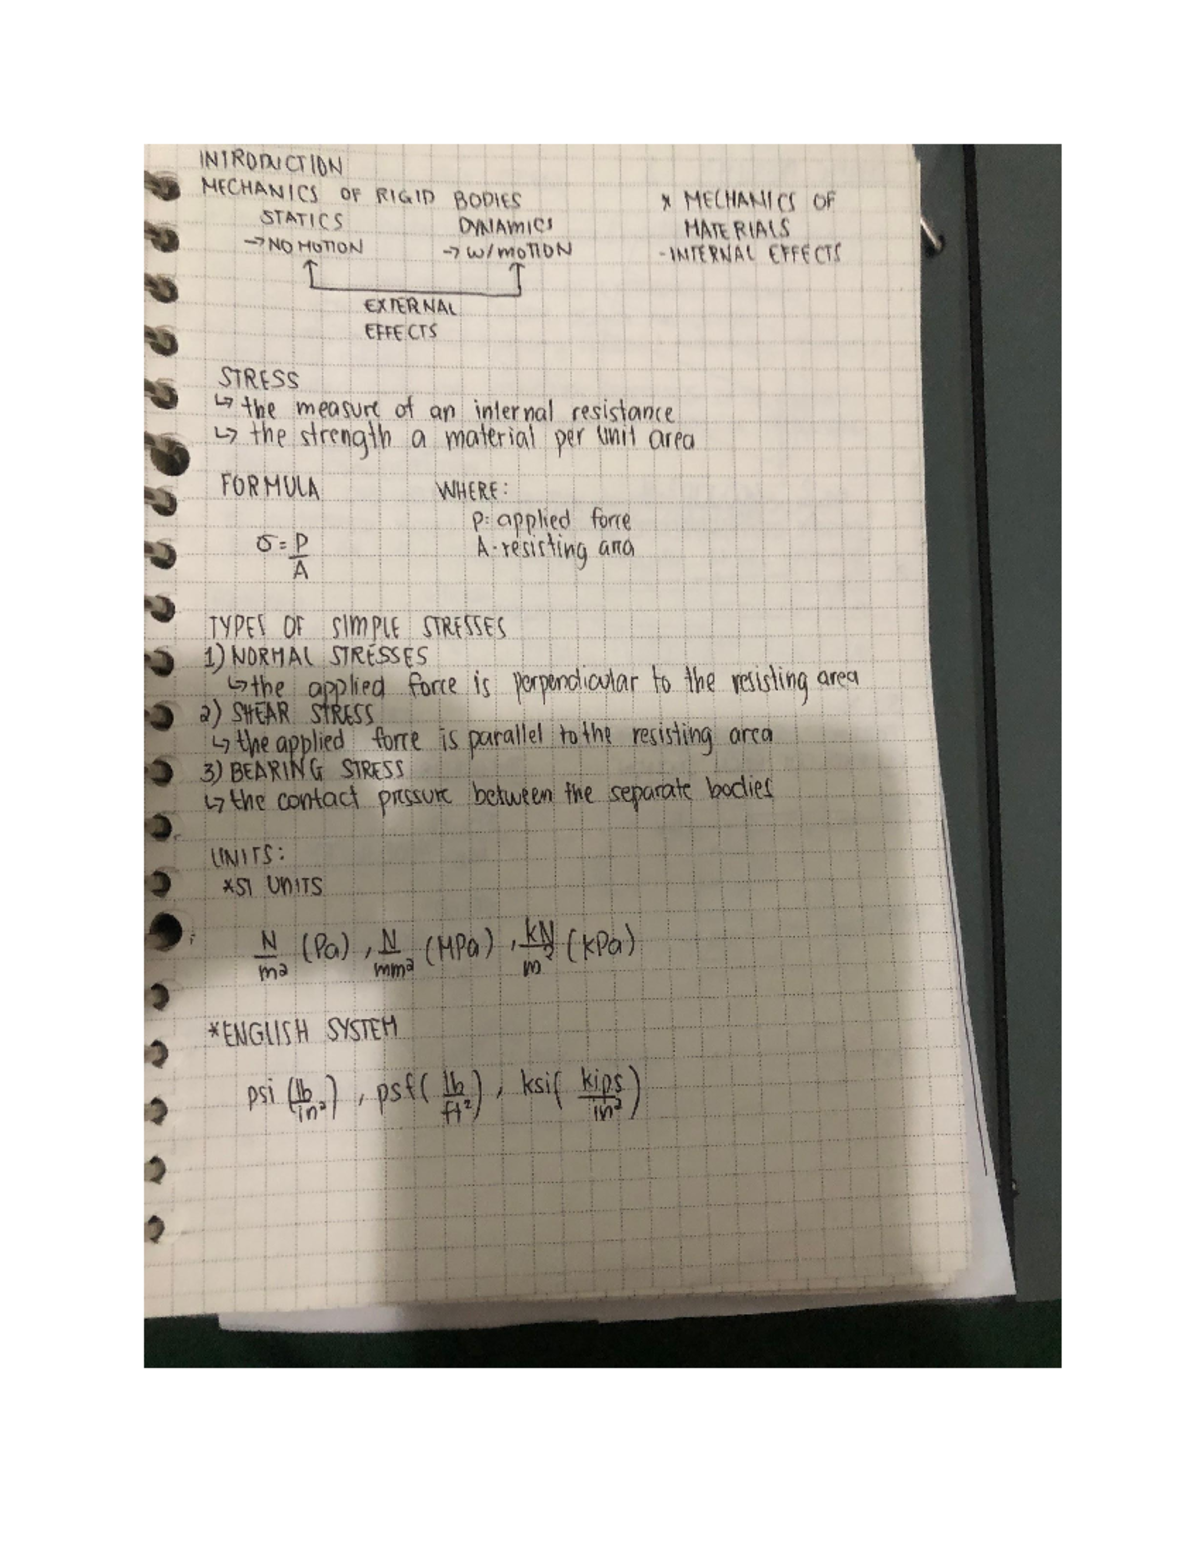 INTRODUCTION
MECHANICS OF RIGID BODIES
STATICS DYNAMICS
→ NO MOTION → w/ MOTION
EXTERNAL
EFFECTS
* MECHANICS OF
MATERIALS
- INTERNAL EFFECTS
STRESS
↳ the measure of an internal resistance
↳ the strength a material per unit area
FORMULA WHERE:
P: applied force
σ = P/A A - resisting area
TYPES OF SIMPLE STRESSES
1) NORMAL STRESSES
↳ the applied force is perpendicular to the resisting area
2) SHEAR STRESS
↳ the applied force is parallel to the resisting area
3) BEARING STRESS
↳ the contact pressure between the separate bodies
UNITS:
*SI UNITS
N/m² (Pa), N/mm² (MPa), kN/m² (kPa)
*ENGLISH SYSTEM
psi (lb/in²), psf (lb/ft²), ksi (kips/in²)